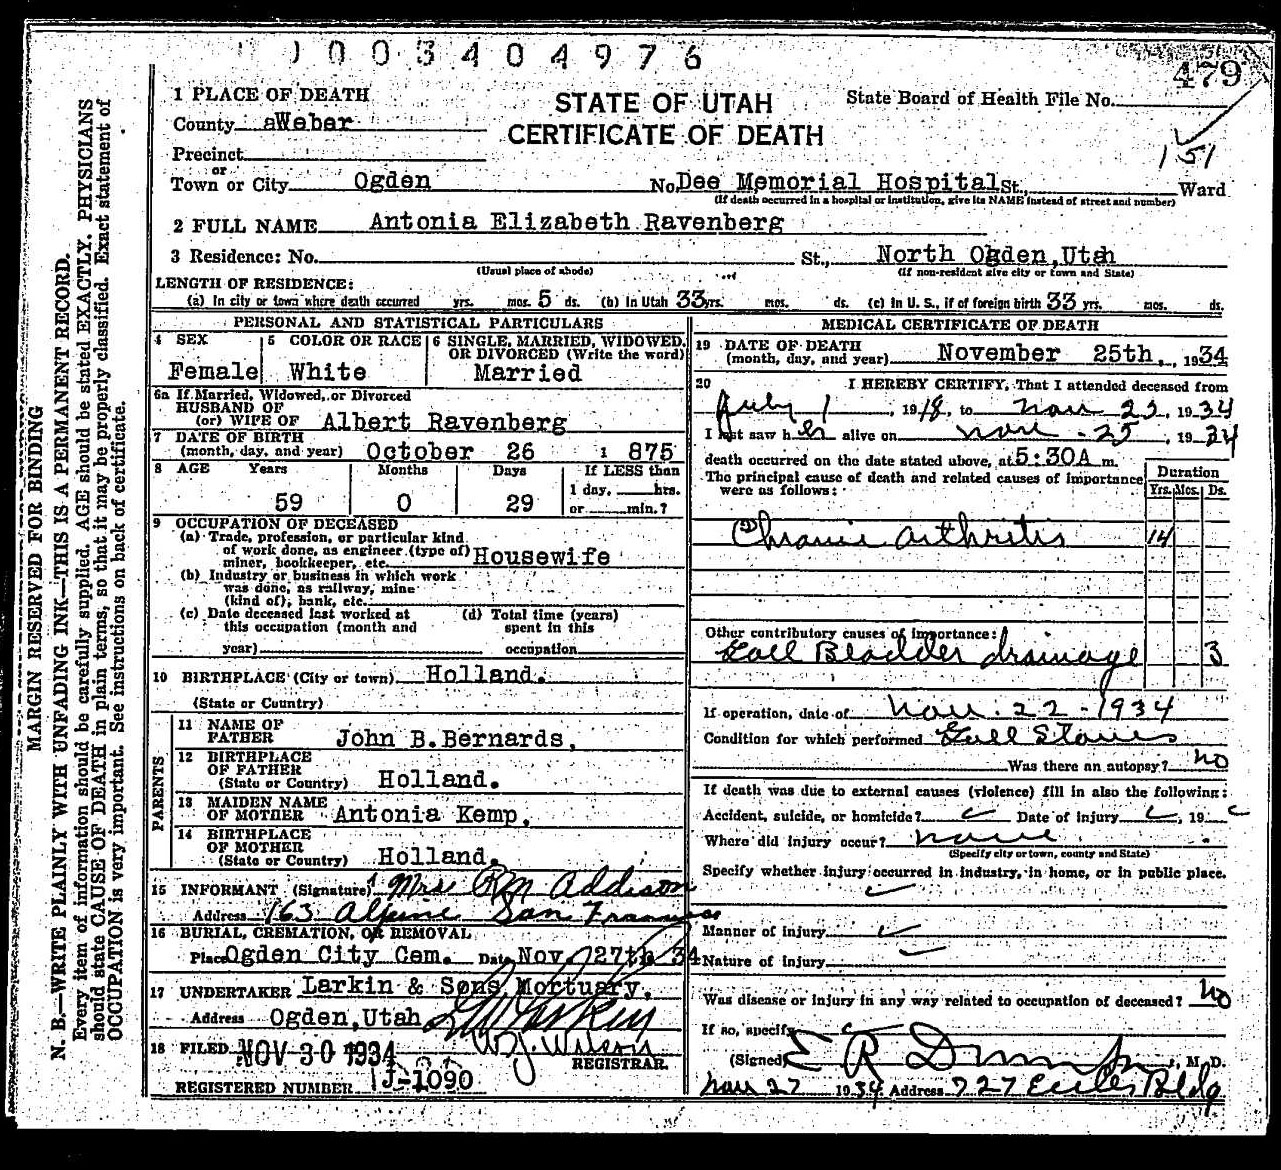 1003404976
479
1 PLACE OF DEATH
STATE OF UTAH
State Board of Health File No.
County aWeber
CERTIFICATE OF DEATH
151
Precinct
or
Town or City Ogden No. Dee Memorial Hospital St., Ward
(If death occurred in a hospital or institution, give its NAME instead of street and number)
2 FULL NAME Antonia Elizabeth Ravenberg
3 Residence: No. St., North Ogden,Utah
(Usual place of abode) (If non-resident give city or town and State)
LENGTH OF RESIDENCE:
(a) In city or town where death occurred yrs. mos. 5 ds. (b) In Utah 33 yrs. mos. ds. (c) In U. S., if of foreign birth 33 yrs. mos. ds.
PERSONAL AND STATISTICAL PARTICULARS
4 SEX 5 COLOR OR RACE 6 SINGLE, MARRIED, WIDOWED,
OR DIVORCED (Write the word)
Female White Married
6a If Married, Widowed, or Divorced
HUSBAND OF
(or) WIFE OF Albert Ravenberg
7 DATE OF BIRTH
(month, day, and year) October 26 1 875
8 AGE Years Months Days If LESS than
1 day, hrs.
59 0 29 or min.?
9 OCCUPATION OF DECEASED
(a) Trade, profession, or particular kind
of work done, as engineer (type of)
miner, bookkeeper, etc. Housewife
(b) Industry or business in which work
was done, as railway, mine
(kind of), bank, etc.
(c) Date deceased last worked at (d) Total time (years)
this occupation (month and spent in this
year) occupation
10 BIRTHPLACE (City or town) Holland.
(State or Country)
PARENTS
11 NAME OF
FATHER John B.Bernards,
12 BIRTHPLACE
OF FATHER
(State or Country) Holland.
13 MAIDEN NAME
OF MOTHER Antonia Kemp,
14 BIRTHPLACE
OF MOTHER
(State or Country) Holland.
15 INFORMANT (Signature) Mrs R M Addison
Address 163 Alpine San Francisco
16 BURIAL, CREMATION, OR REMOVAL
Place Ogden City Cem. Date Nov. 27th 34
17 UNDERTAKER Larkin & Sons Mortuary,
Address Ogden,Utah
18 FILED NOV 30 1934 W.J. Wilson
REGISTRAR.
REGISTERED NUMBER J-1090
MEDICAL CERTIFICATE OF DEATH
19 DATE OF DEATH
(month, day, and year) November 25th., 1934
20 I HEREBY CERTIFY, That I attended deceased from
July 1, 1918, to Nov 25, 1934
I last saw her alive on Nov - 25, 1934
death occurred on the date stated above, at 5:30A m.
The principal cause of death and related causes of importance
were as follows:
Duration
Yrs. Mos. Ds.
Chronic arthritis 14
Other contributory causes of importance:
Gall Bladder drainage 3
If operation, date of Nov. 22 - 1934
Condition for which performed Gall Stones
Was there an autopsy? no
If death was due to external causes (violence) fill in also the following:
Accident, suicide, or homicide? Date of injury , 19
Where did injury occur? none
(Specify city or town, county and State)
Specify whether injury occurred in industry, in home, or in public place.
Manner of Injury
Nature of Injury
Was disease or injury in any way related to occupation of deceased? no
If so, specify
(Signed) E R , M. D.
Nov 27 1934 Address 727 Eccles Bldg
MARGIN RESERVED FOR BINDING
N. B.—WRITE PLAINLY WITH UNFADING INK—THIS IS A PERMANENT RECORD.
Every item of information should be carefully supplied. AGE should be stated EXACTLY. PHYSICIANS
should state CAUSE OF DEATH in plain terms, so that it may be properly classified. Exact statement of
OCCUPATION is very important. See instructions on back of certificate.